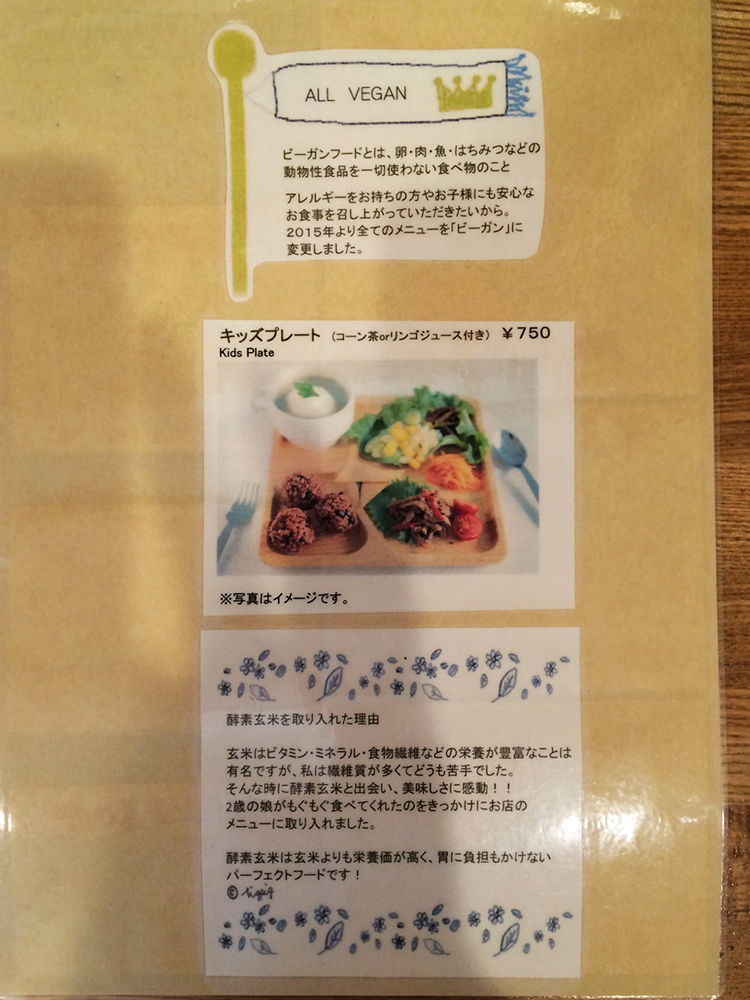 ALL VEGAN
ビーガンフードとは、卵・肉・魚・はちみつなどの
動物性食品を一切使わない食べ物のこと
アレルギーをお持ちの方やお子様にも安心な
お食事を召し上がっていただきたいから。
2015年より全てのメニューを「ビーガン」に
変更しました。
キッズプレート (コーン茶orリンゴジュース付き) ￥750
Kids Plate
※写真はイメージです。
酵素玄米を取り入れた理由
玄米はビタミン・ミネラル・食物繊維などの栄養が豊富なことは
有名ですが、私は繊維質が多くてどうも苦手でした。
そんな時に酵素玄米と出会い、美味しさに感動！！
2歳の娘がもぐもぐ食べてくれたのをきっかけにお店の
メニューに取り入れました。
酵素玄米は玄米よりも栄養価が高く、胃に負担もかけない
パーフェクトフードです！